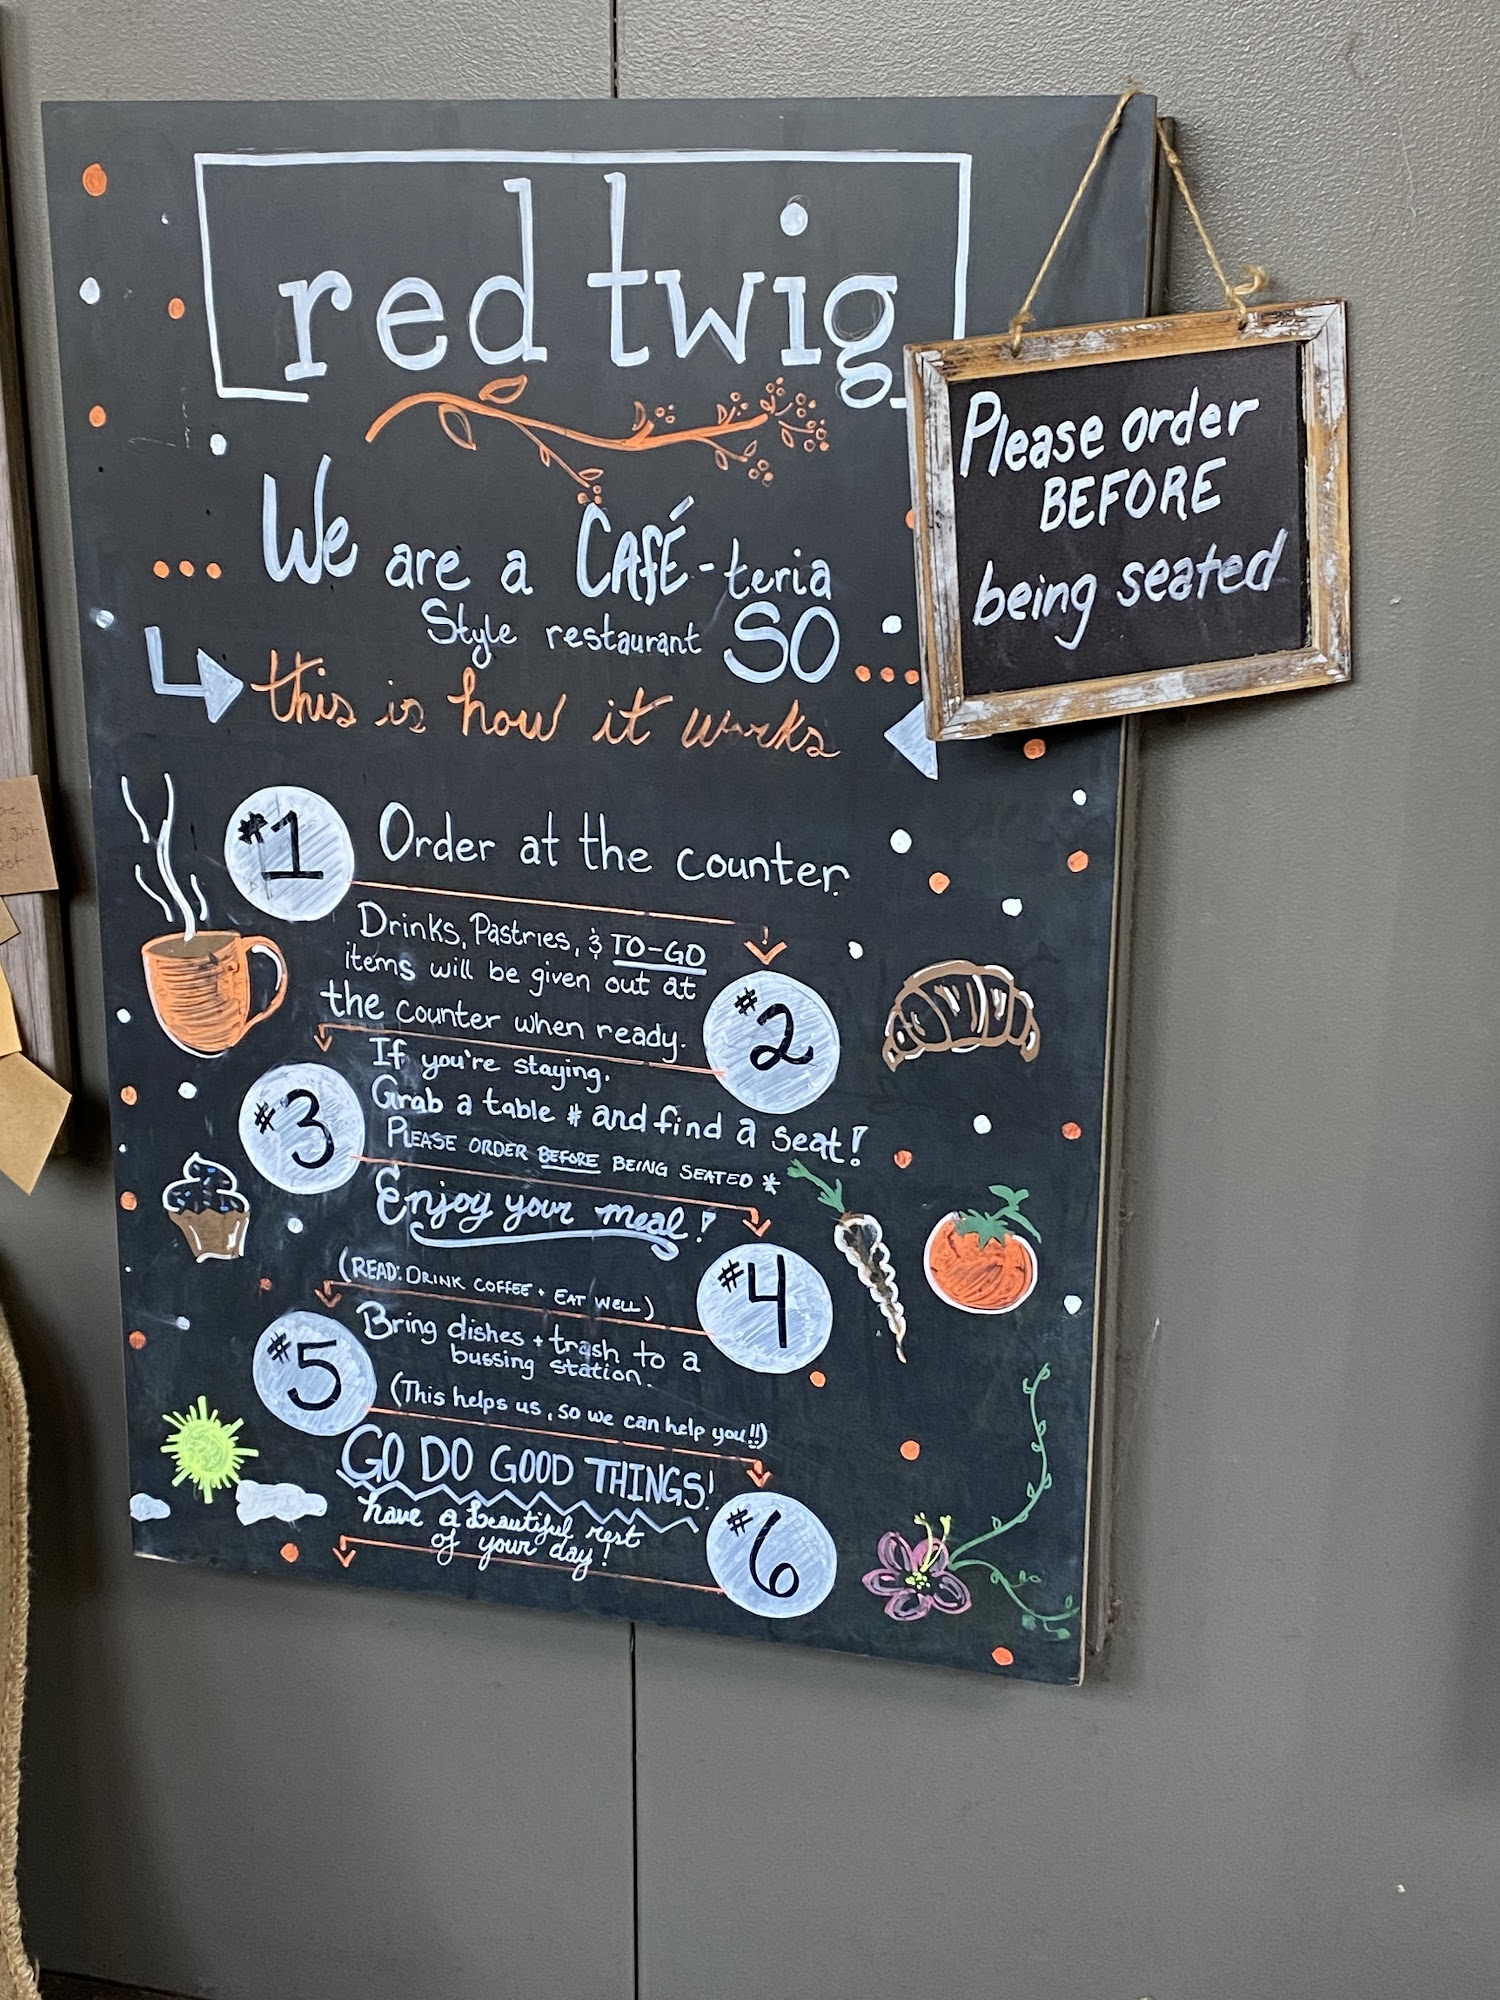 red twig
We are a CAFÉ-teria
Style restaurant SO
this is how it works
Please order
BEFORE
being seated
#1 Order at the counter.
Drinks, Pastries, & TO-GO
items will be given out at
the counter when ready.
#2
If you're staying.
#3 Grab a table # and find a seat!
PLEASE ORDER BEFORE BEING SEATED *
Enjoy your meal!
#4
(READ: DRINK COFFEE + EAT WELL)
#5 Bring dishes + trash to a
bussing station.
(This helps us, so we can help you!!)
GO DO GOOD THINGS!
#6
have a beautiful rest
of your day!
Just